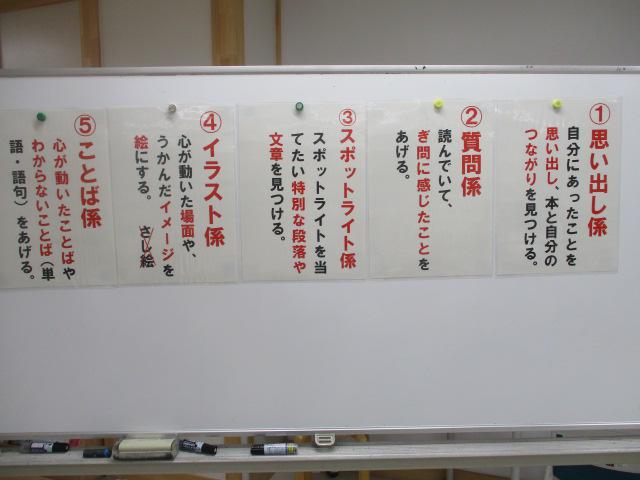 ①思い出し係
自分にあったことを
思い出し、本と自分の
つながりを見つける。
②質問係
読んでいて、
ぎ問に感じたことを
あげる。
③スポットライト係
スポットライトを当
てたい特別な段落や
文章を見つける。
④イラスト係
心が動いた場面や、
うかんだイメージを
絵にする。
さし絵
⑤ことば係
心が動いたことばや
わからないことば（単
語・語句）をあげる。